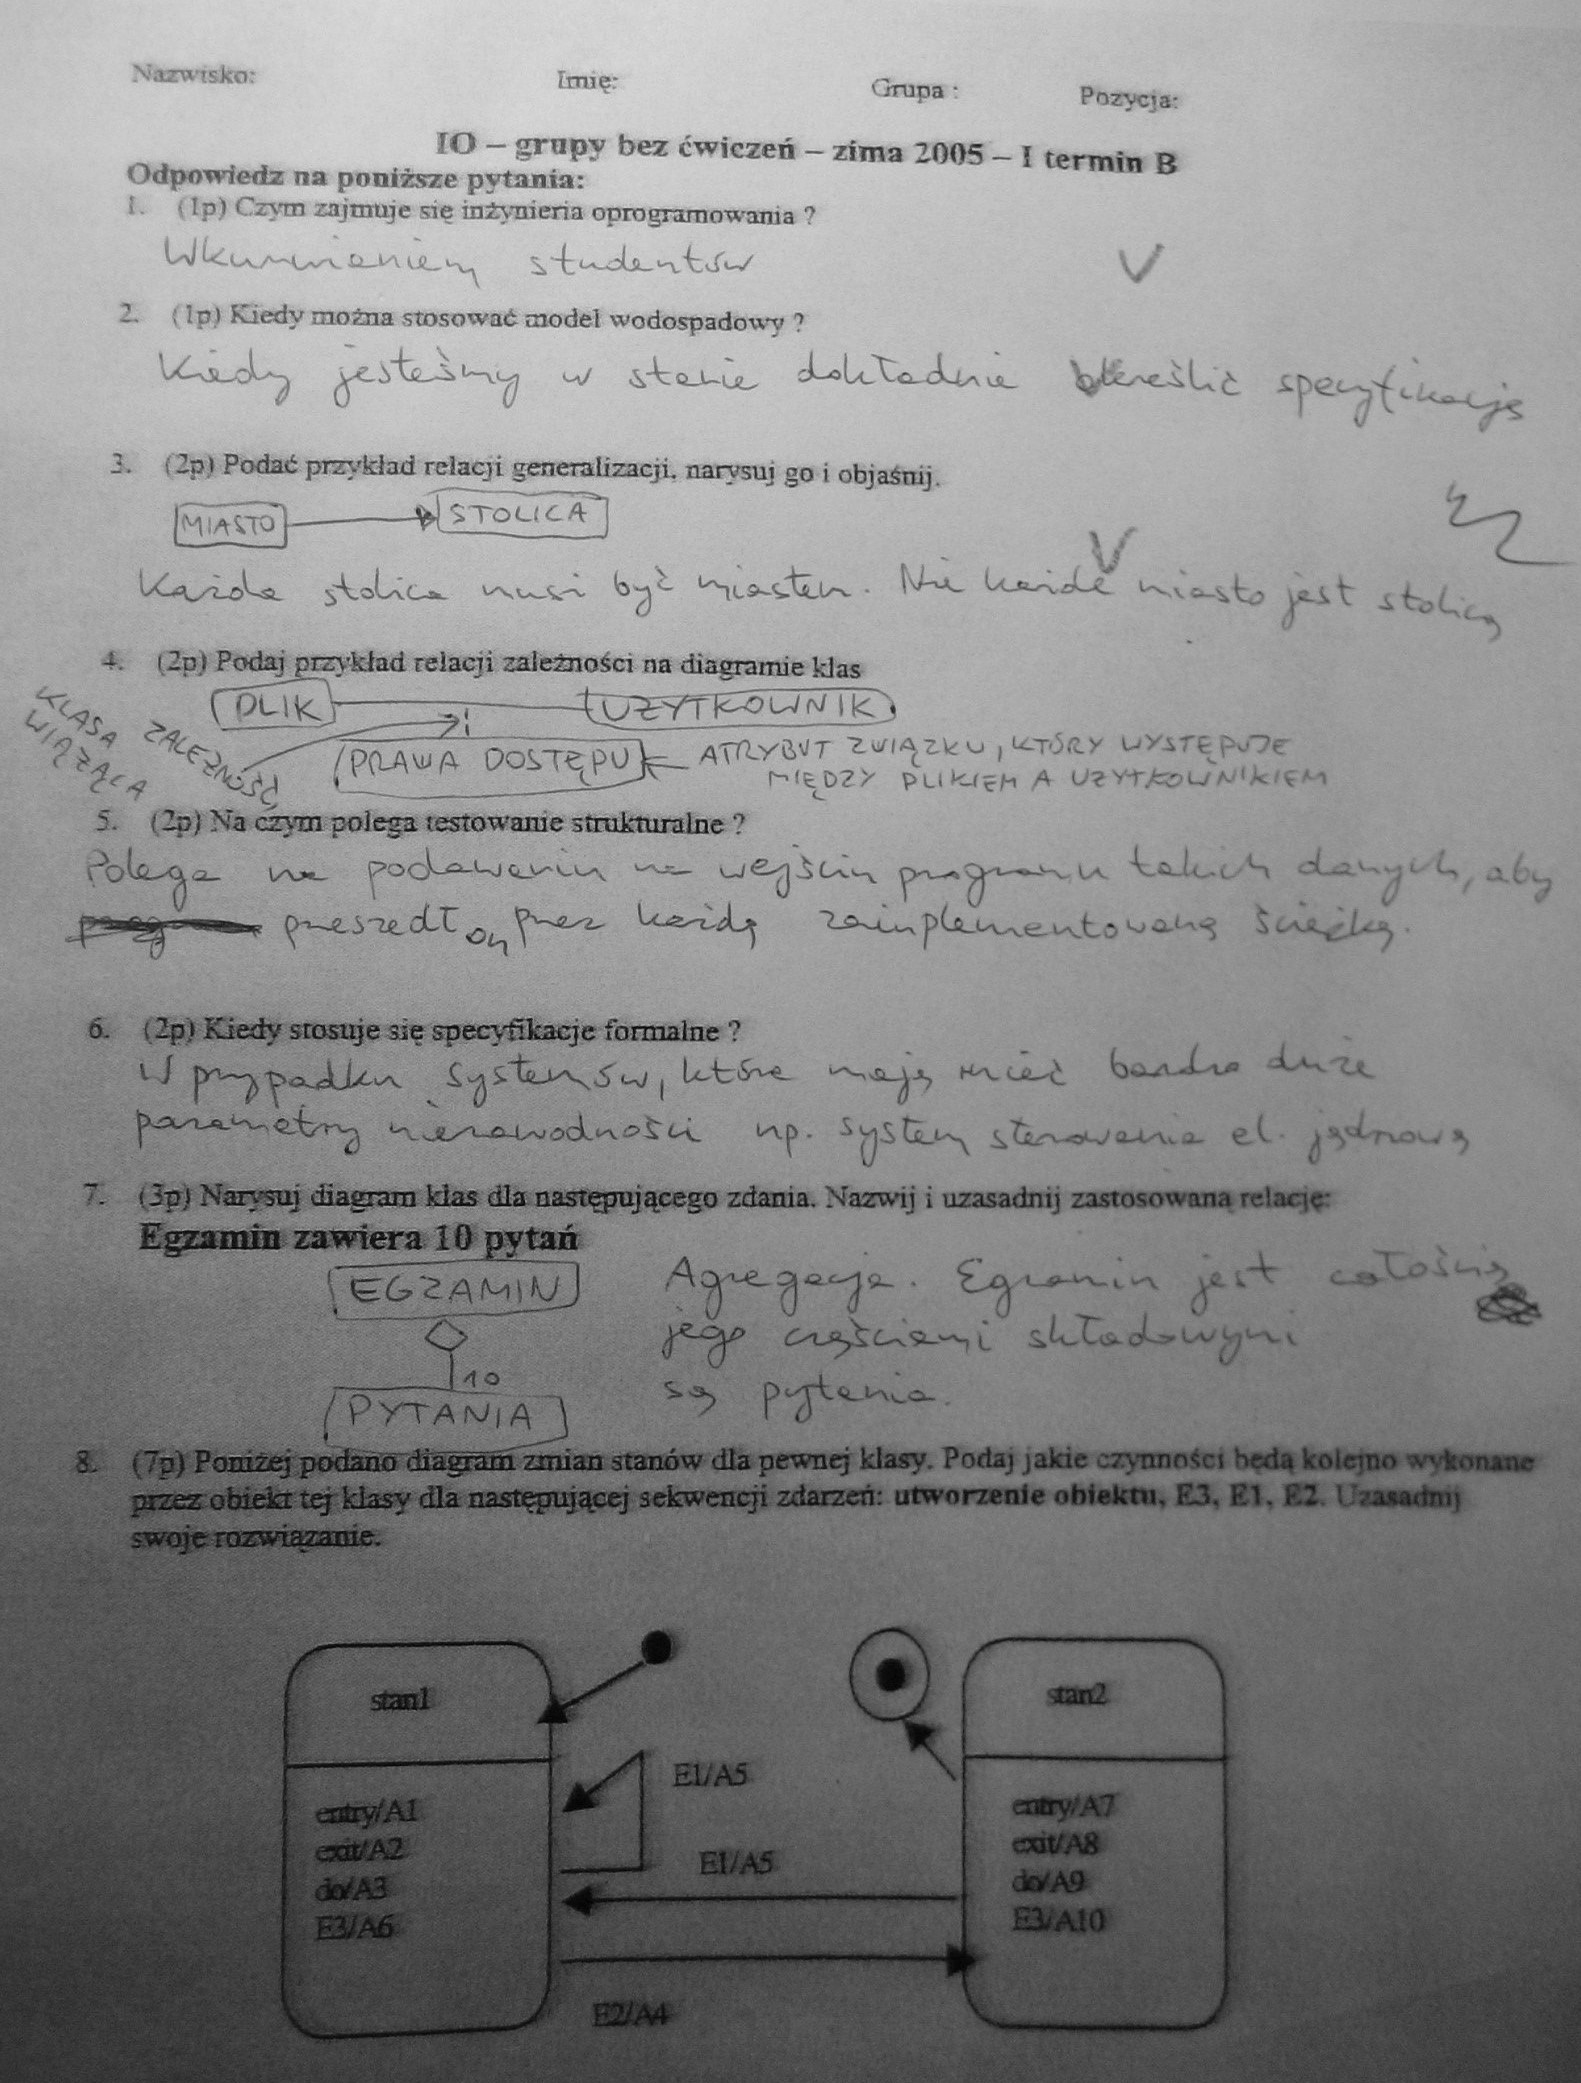 Nazwisko: Imię: Grupa : Pozycja:
IO – grupy bez ćwiczeń – zima 2005 – I termin B
Odpowiedz na poniższe pytania:
1. (1p) Czym zajmuje się inżynieria oprogramowania ?
Wkurwieniem studentów
2. (1p) Kiedy można stosować model wodospadowy ?
Kiedy jesteśmy w stanie dokładnie określić specyfikację
3. (2p) Podać przykład relacji generalizacji, narysuj go i objaśnij.
MIASTO STOLICA
Każda stolica musi być miastem. Nie każde miasto jest stolicą
4. (2p) Podaj przykład relacji zależności na diagramie klas
PLIK UŻYTKOWNIK
KLASA WIĄŻĄCA ZALEŻNOŚĆ PRAWA DOSTĘPU ATRYBUT ZWIĄZKU, KTÓRY WYSTĘPUJE
MIĘDZY PLIKIEM A UŻYTKOWNIKIEM
5. (2p) Na czym polega testowanie strukturalne ?
Polega na podawaniu na wejściu programu takich danych, aby
przeszedł on przez każdą zaimplementowaną ścieżkę.
6. (2p) Kiedy stosuje się specyfikacje formalne ?
W przypadku systemów, które mają mieć bardzo duże
parametry niezawodności np. system sterowania el. jądrową
7. (3p) Narysuj diagram klas dla następującego zdania. Nazwij i uzasadnij zastosowaną relację:
Egzamin zawiera 10 pytań
EGZAMIN Agregacja. Egzamin jest całością
jego częściami składowymi
10
PYTANIA są pytania.
8. (7p) Poniżej podano diagram zmian stanów dla pewnej klasy. Podaj jakie czynności będą kolejno wykonane
przez obiekt tej klasy dla następującej sekwencji zdarzeń: utworzenie obiektu, E3, E1, E2. Uzasadnij
swoje rozwiązanie.
stan1 stan2
E1/A5
entry/A1 entry/A7
exit/A2 exit/A8
E1/A5
do/A3 do/A9
E3/A6 E3/A10
E2/A4